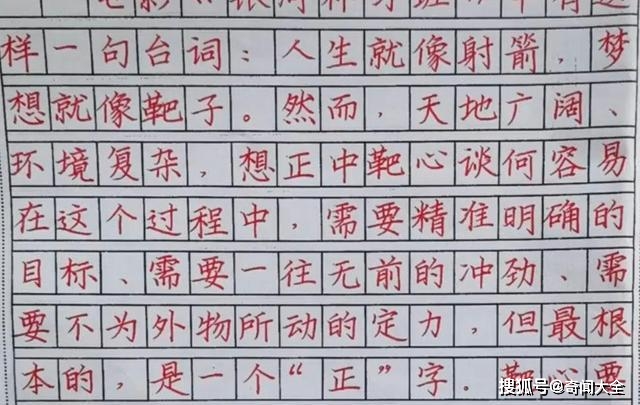 样一句台词：人生就像射箭，梦
想就像靶子。然而，天地广阔、
环境复杂，想正中靶心谈何容易
在这个过程中，需要精准明确的
目标、需要一往无前的冲劲、需
要不为外物所动的定力，但最根
本的，是一个“正”字．靶心要
搜狐号@奇闻大全